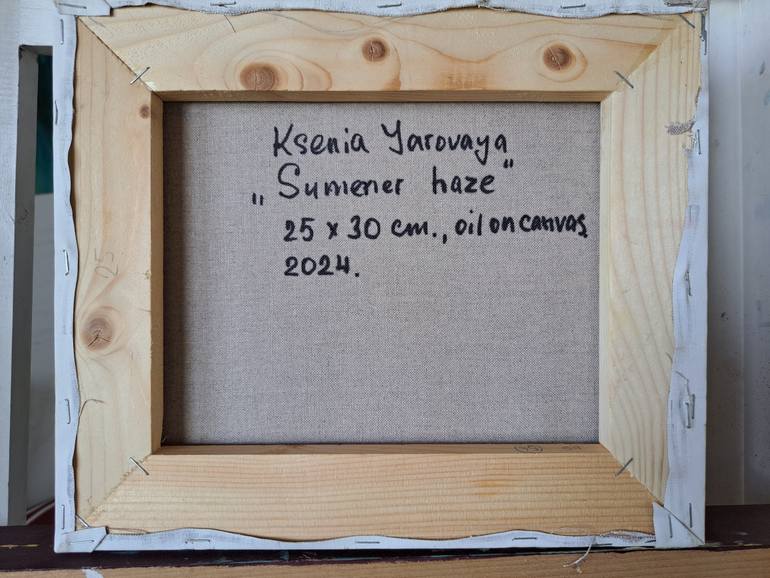 Ksenia Yarovaya
„Sumener haze"
25 x 30 cm., oil on canvas.
2024.